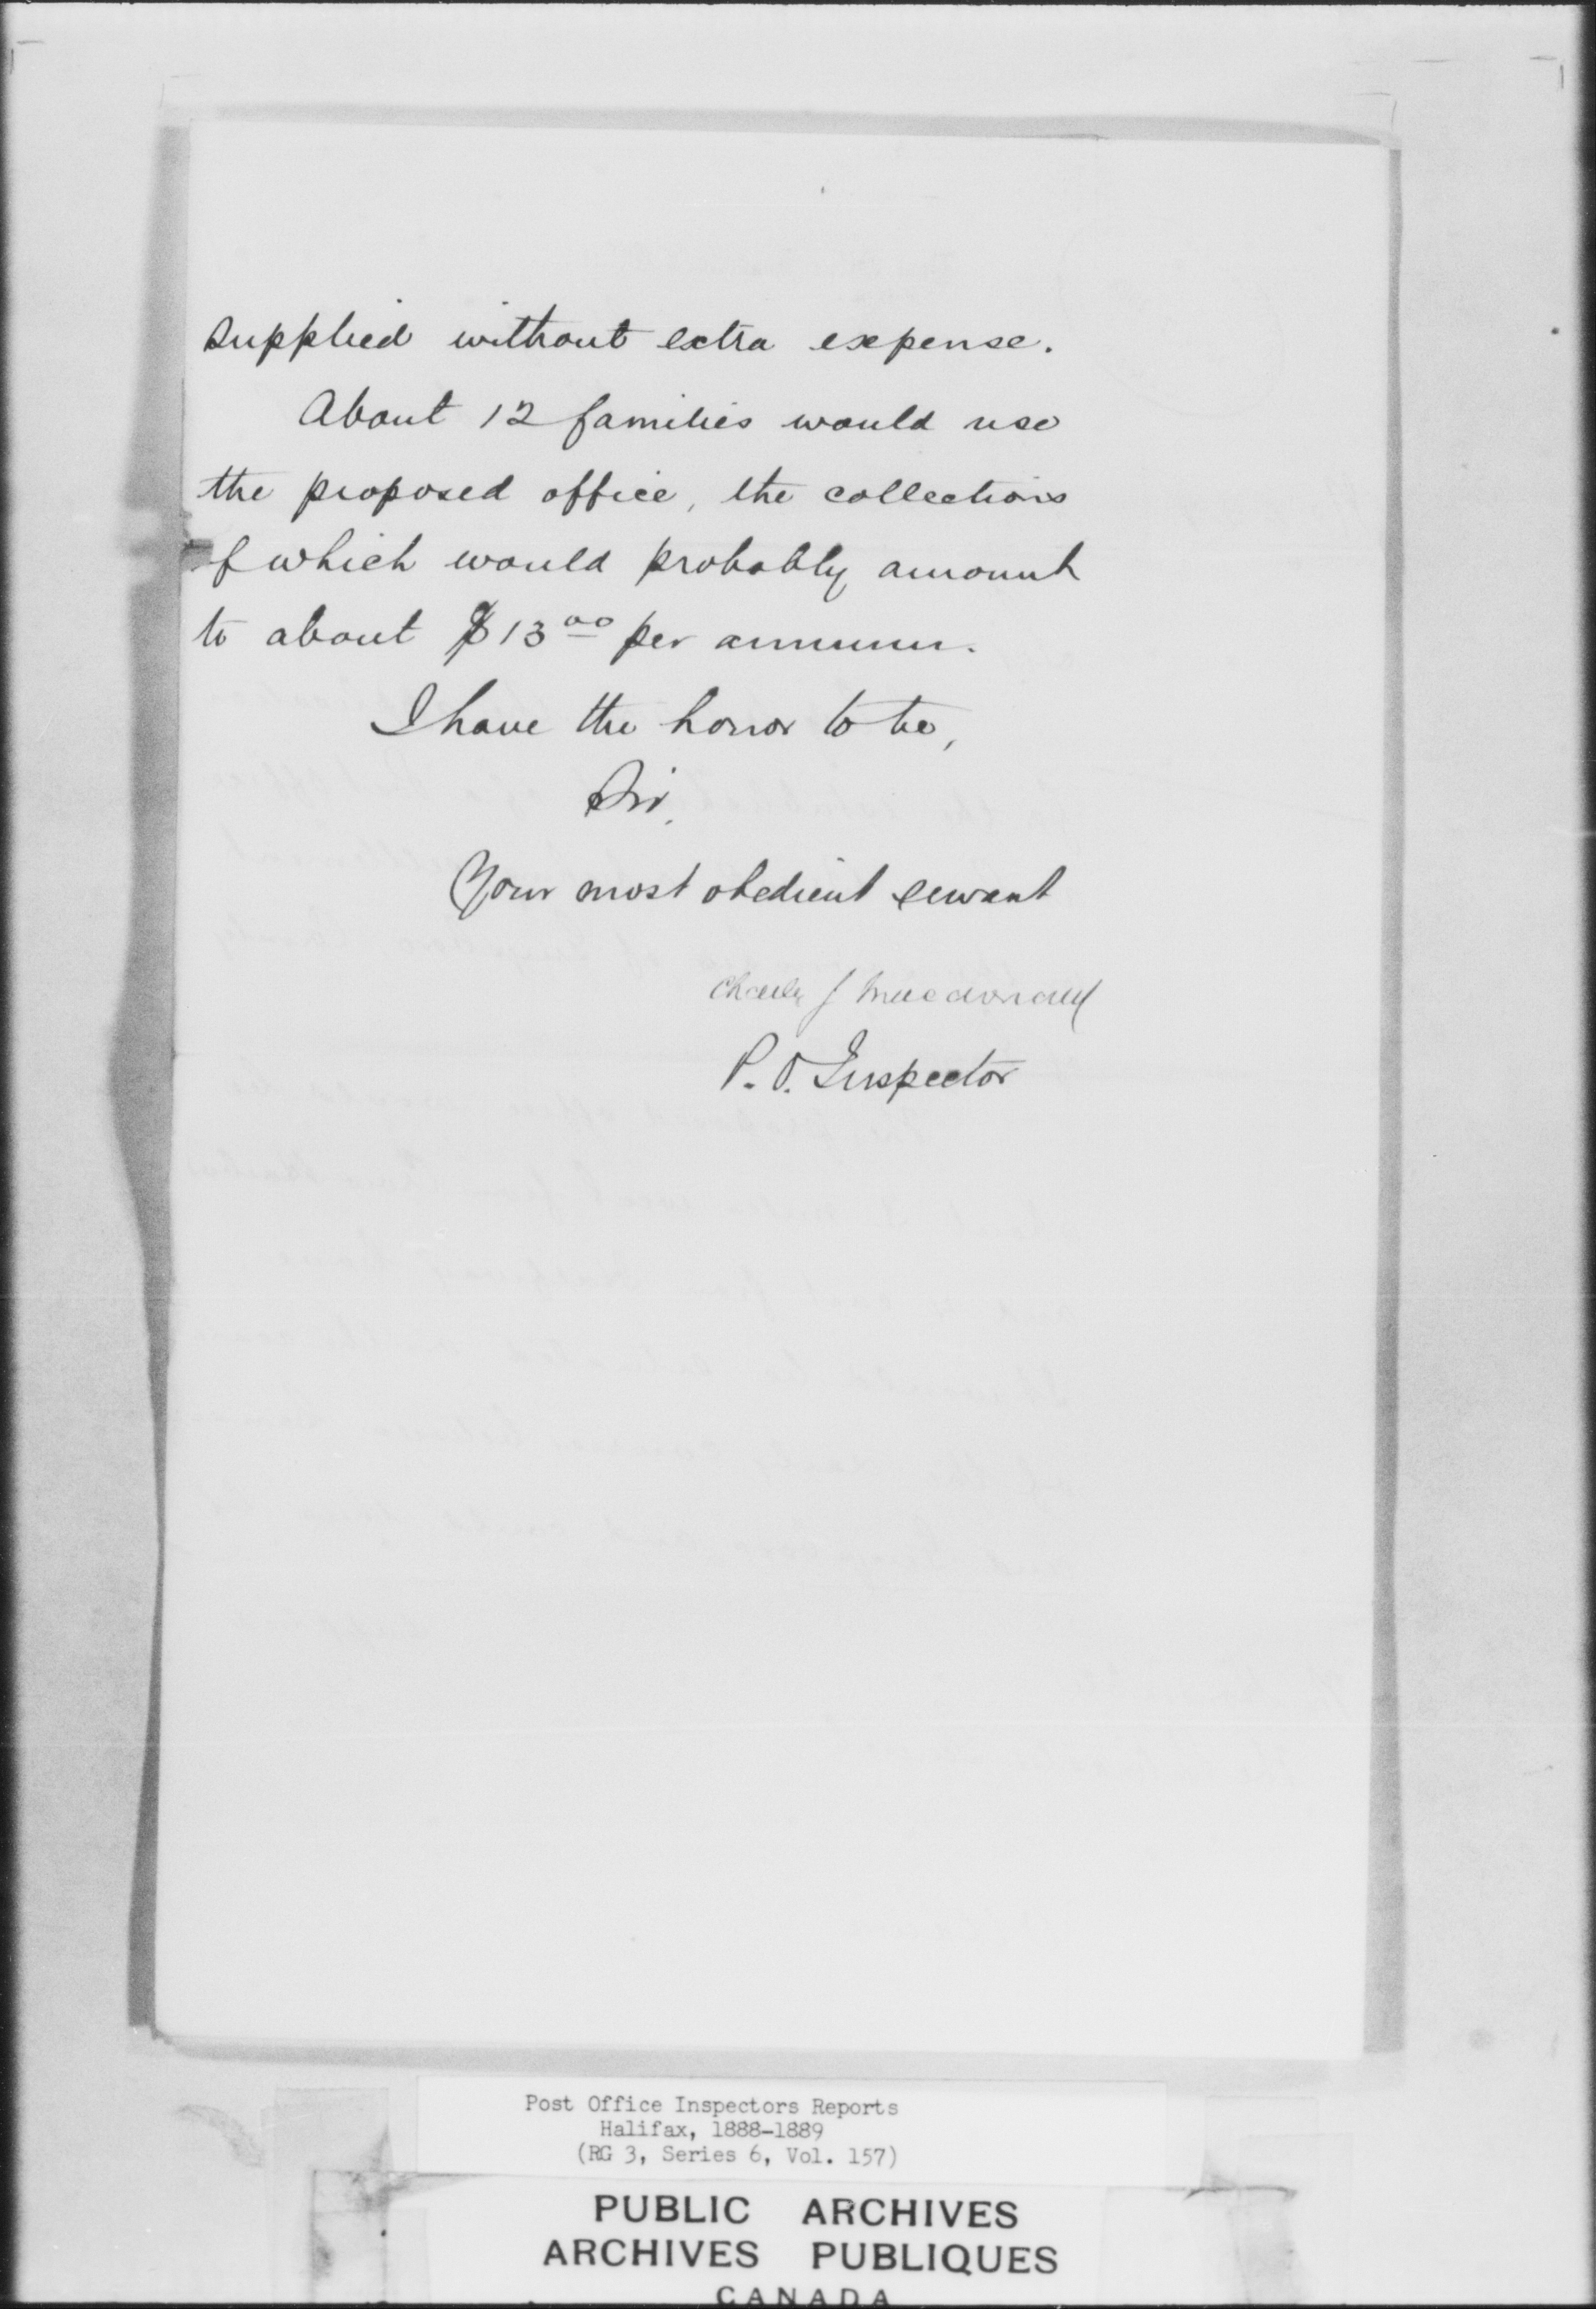 supplied without extra expense.
About 12 families would use
the proposed office, the collections
of which would probably amount
to about $13.00 per annum.
I have the honor to be,
Sir,
Your most obedient servant
Charles J Macdonald
P. O. Inspector
Post Office Inspectors Reports
Halifax, 1888-1889
(RG 3, Series 6, Vol. 157)
PUBLIC ARCHIVES
ARCHIVES PUBLIQUES
CANADA